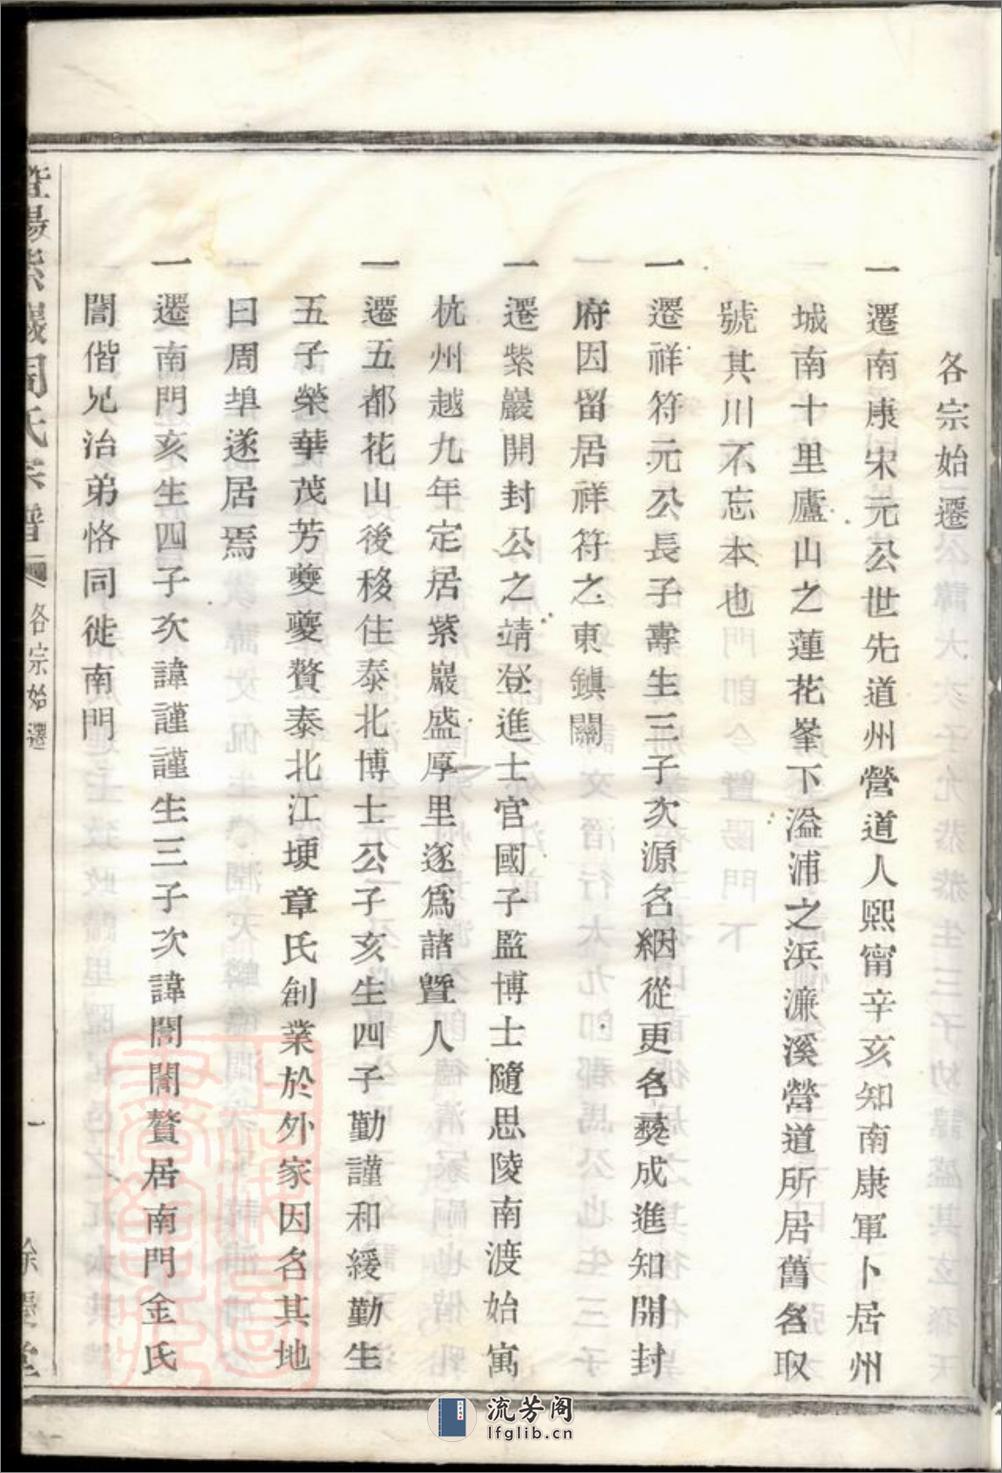 各宗始遷
一遷南康宋元公世先道州營道人熙甯辛亥知南康軍卜居州
城南十里廬山之蓮花峯下溢浦之浜濂溪營道所居舊名取
號其川不忘本也
一遷祥符元公長子壽生三子次源名絪從更名㷼成進知開封
府因留居祥符之東鎮關
一遷紫巖開封公之靖登進士官國子監博士隨思陵南渡始寓
杭州越九年定居紫巖盛厚里遂為諸暨人
一遷五都花山後移住泰北博士公子亥生四子勤謹和緩勤生
五子榮華茂芳夔夔贅泰北江埂章氏創業於外家因名其地
曰周埠遂居焉
一遷南門亥生四子次諱謹謹生三子次諱誾誾贅居南門金氏
誾偕兄治弟恪同徙南門
暨陽紫巖周氏宗譜
各宗始遷
一
餘慶堂
流芳阁
lfglib.cn